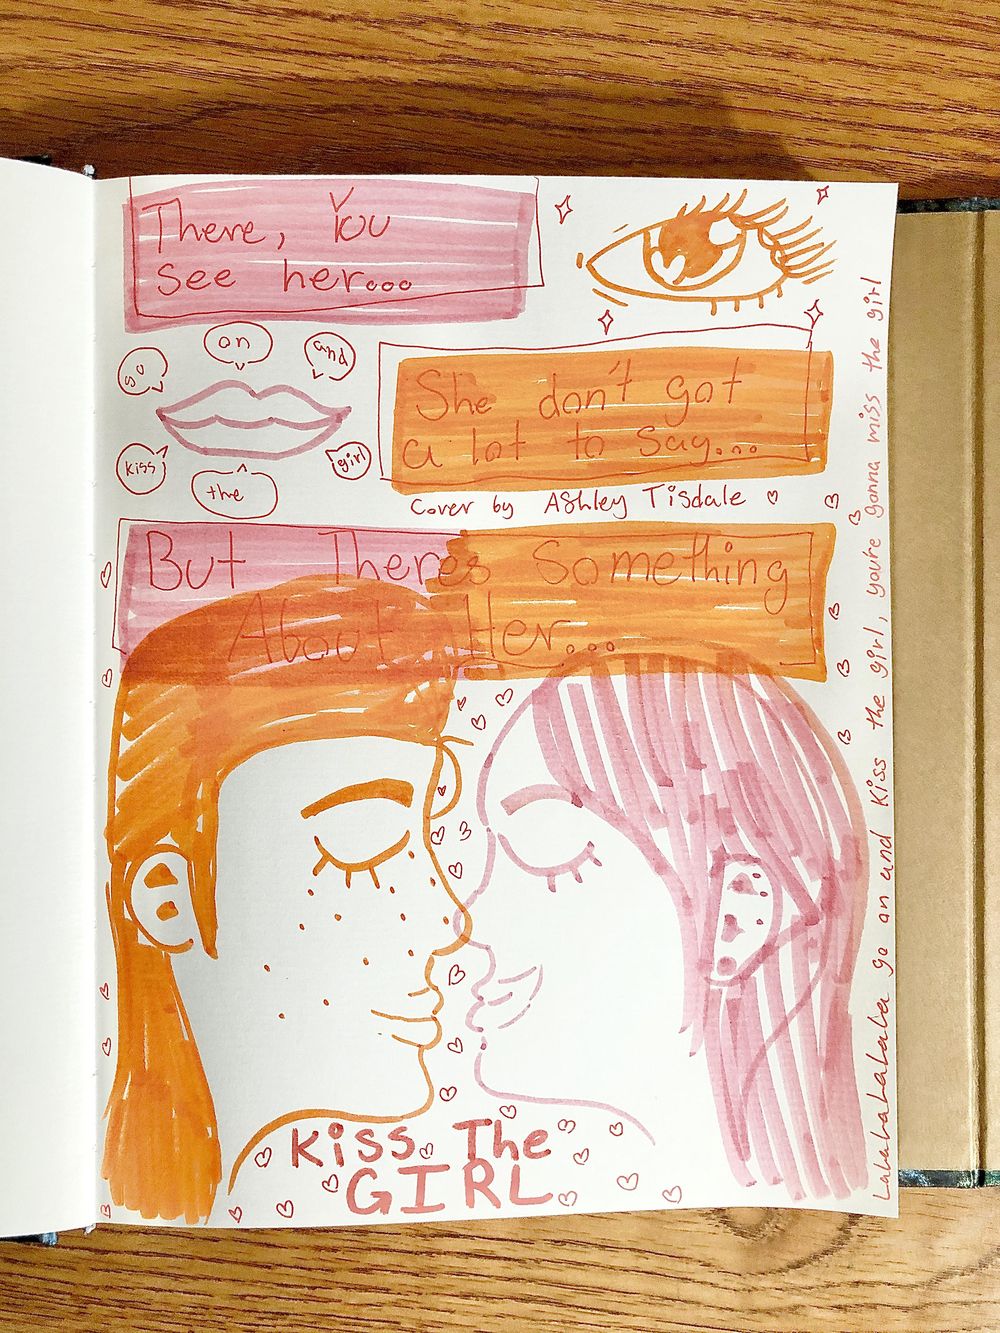 There, You
see her...
go
on
and
kiss
the
girl
She don't got
a lot to say...
Cover by Ashley Tisdale
But There's Something
About Her...
Kiss The
GIRL
LaLaLaLaLaLa go on and Kiss the girl, you're gonna miss the girl